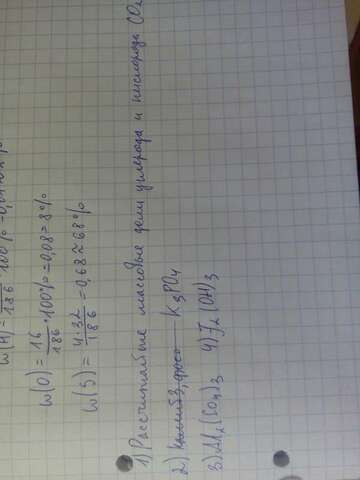 w(O) = 16/186 · 100% = 0,08 = 8%
w(S) = 4·32/186 = 0,68 ≈ 68%
1) Рассчитайте массовые доли углерода и кислорода CO2
2) K3PO4
3) Al2(CO4)3 4) J2(OH)3